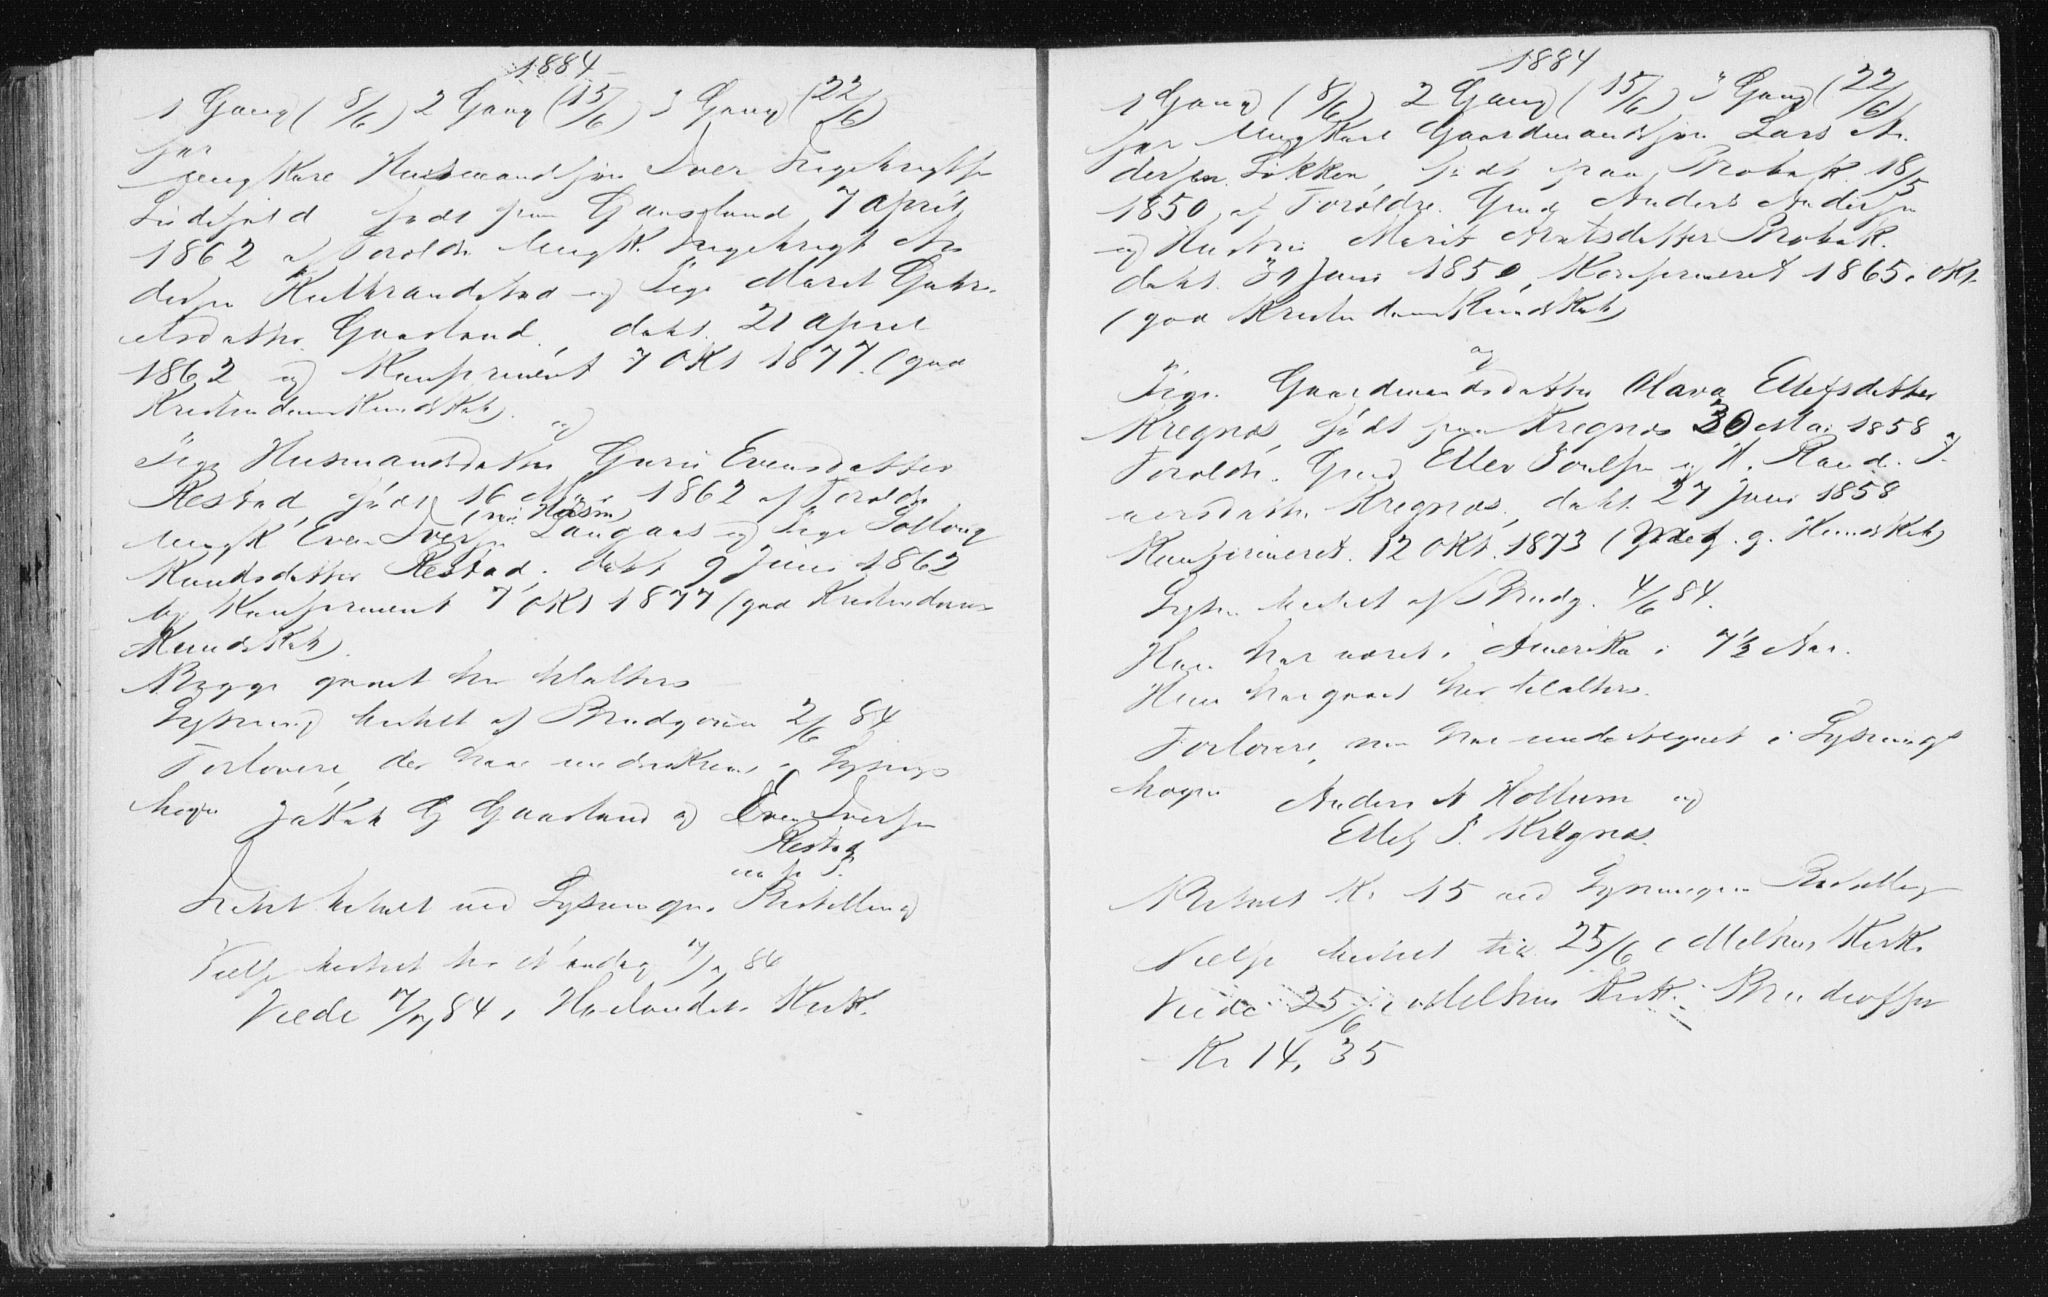 1884
1 Gang (8/6) 2 Gang (15/6) 3 Gang (22/6)
for
Ungkarl Husmandssøn Iver Ingebrigtsen
født paa Gaasland 7 April
1862 af Foroldre Ungk. Ingebrigt An
dersen og Pige Marit
datter Gaasland, døbt 21 April
1862 og Konfirmeret 7 Okt 1877 (god
Kristendomskundskab)
og
Pige Husmandsdatter Guru Evensdatter
Restad, født 16 1862 af Foroldre
(nu Husm)
Ungk Even Iversen Langaas og Pige
Knudsdatter Restad. døbt 9 Juni 1862
og Konfirmeret 7 Okt 1877 (god Kristendoms
Kundskab).
Begge gaaet her til alters
Lysning bestilt af Brudgommen 2/6 84
Forlovere, der have i Lysnings
bogen Jakob G Gaasland og Even Iversen
Restad
m. p. P.
betalt ved Lysningens Bestilling
Vielse bestilt her Mandag 7/7 84
Viede 7/7 84 i Hølandets Kirk.
1884
1 Gang (8/6) 2 Gang (15/6) 3 Gang (22/6)
for Ungkarl Gaardmandssøn Lars An
dersen Løkken, født paa Brobak 18/5
1850 af Foroldre Gmd Anders Andersen
og Hustru Marit Arntsdatter Brobak.
døbt Juni 1850, Konfirmeret 1865 i Okt.
(god Kristendomskundskab)
og
Pige Gaardmandsdatter Olava Ellefsdatter
Kregnes, født paa Kregnes 30 Mai 1858 af
Foroldre Gmd Ellev Poulsen og H. Rand. I
versdatter Kregnes, døbt 27 Juni 1858
Konfirmeret 12 Okt. 1873 (meg. g. Kundskab)
Lysn. bestilt af Brudg. 4/6 84.
Han har været i Amerika i 7½ Aar.
Hun har gaaet her til alters.
Forlovere, som have undertegnet i Lysnings
bogen Anders A Hollum og
Ellef P. Krègnes.
Betalt Kr 15 ved Lysningens Bestilling
Vielse bestilt til 25/6 i Melhus Kirk.
Viede 25/6 i Melhus Kirk. Brudeoffer
Kr 14, 35